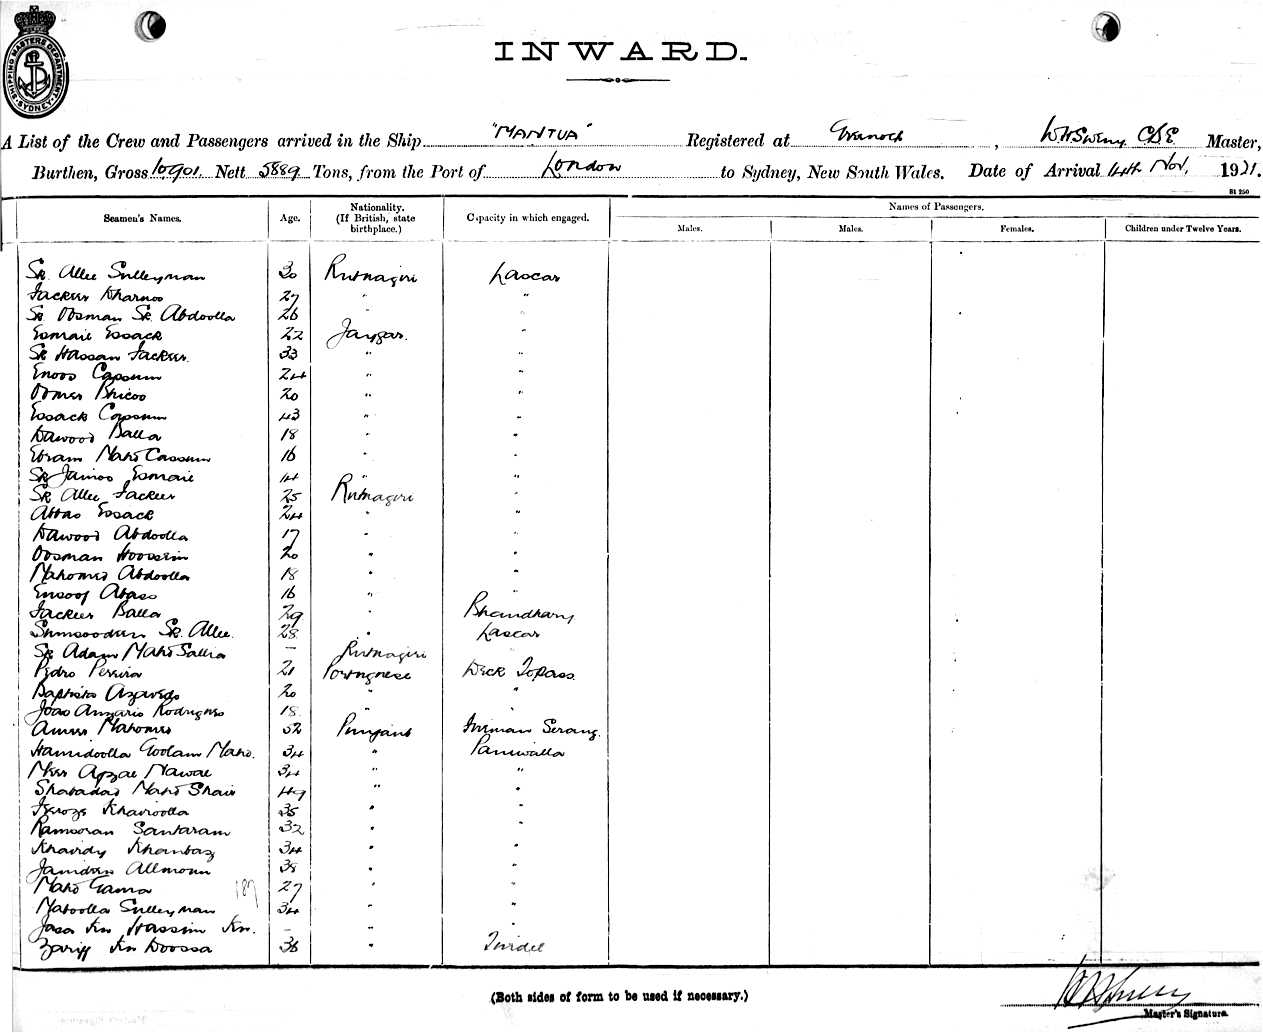 SHIPPING MASTERS DEPARTMENT SYDNEY
INWARD.
A List of the Crew and Passengers arrived in the Ship "MANTUA" Registered at Greenock, Master,
Burthen, Gross 10901. Nett 5889 Tons, from the Port of London to Sydney, New South Wales. Date of Arrival 14th Nov, 1921.
B1 250
Seamen's Names. Age. Nationality. (If British, state birthplace.) Capacity in which engaged. Names of Passengers.
Males. Males. Females. Children under Twelve Years.
Sk. Allee Sulleyman 30 Rutnagiri Lascar
27 " "
Sk. Oosman Sk. Abdoolla 26 " "
Esmail Essack 22 Jaygar. "
Sk Hassan 33 " "
Enoos Cassum 24 " "
20 " "
Essack Cassum 43 " "
Dawood Balla 18 " "
Ebram Mahd Cassum 16 " "
Sk Jainoo Esmail 44 " "
Sk Allee 25 Rutnagiri "
Abbas Essack 24 " "
Dawood Abdoolla 17 " "
Oosman Hoossein 20 " "
Mahomed Abdoolla 18 " "
Abass 16 " "
Balla 29 " Bhandhary
Shmsoodin Sk. Allee. 28 " Lascar
Sk Adam Mahd Sallia - Rutnagiri
Pedro Pereira 21 Portuguese Deck Topass
Baptista Azavedo 20 " "
Joao Rodrigues 18 " "
Mahomed 52 Punjaub Fireman Serang.
Hamidoolla Goolam Mahd. 34 " Paniwalla
Nawal 34 " "
Mahd Shaw 49 " "
Khairoolla 35 " "
Ramsoran Santaram 32 " "
Khanbaz 34 " "
38 " "
Mahd Gama 187 27 " "
Sulleyman 34 " "
Hassim Kn. - " "
Zariff Kn Doossa 36 " Tindel
(Both sides of form to be used if necessary.)
Master's Signature.